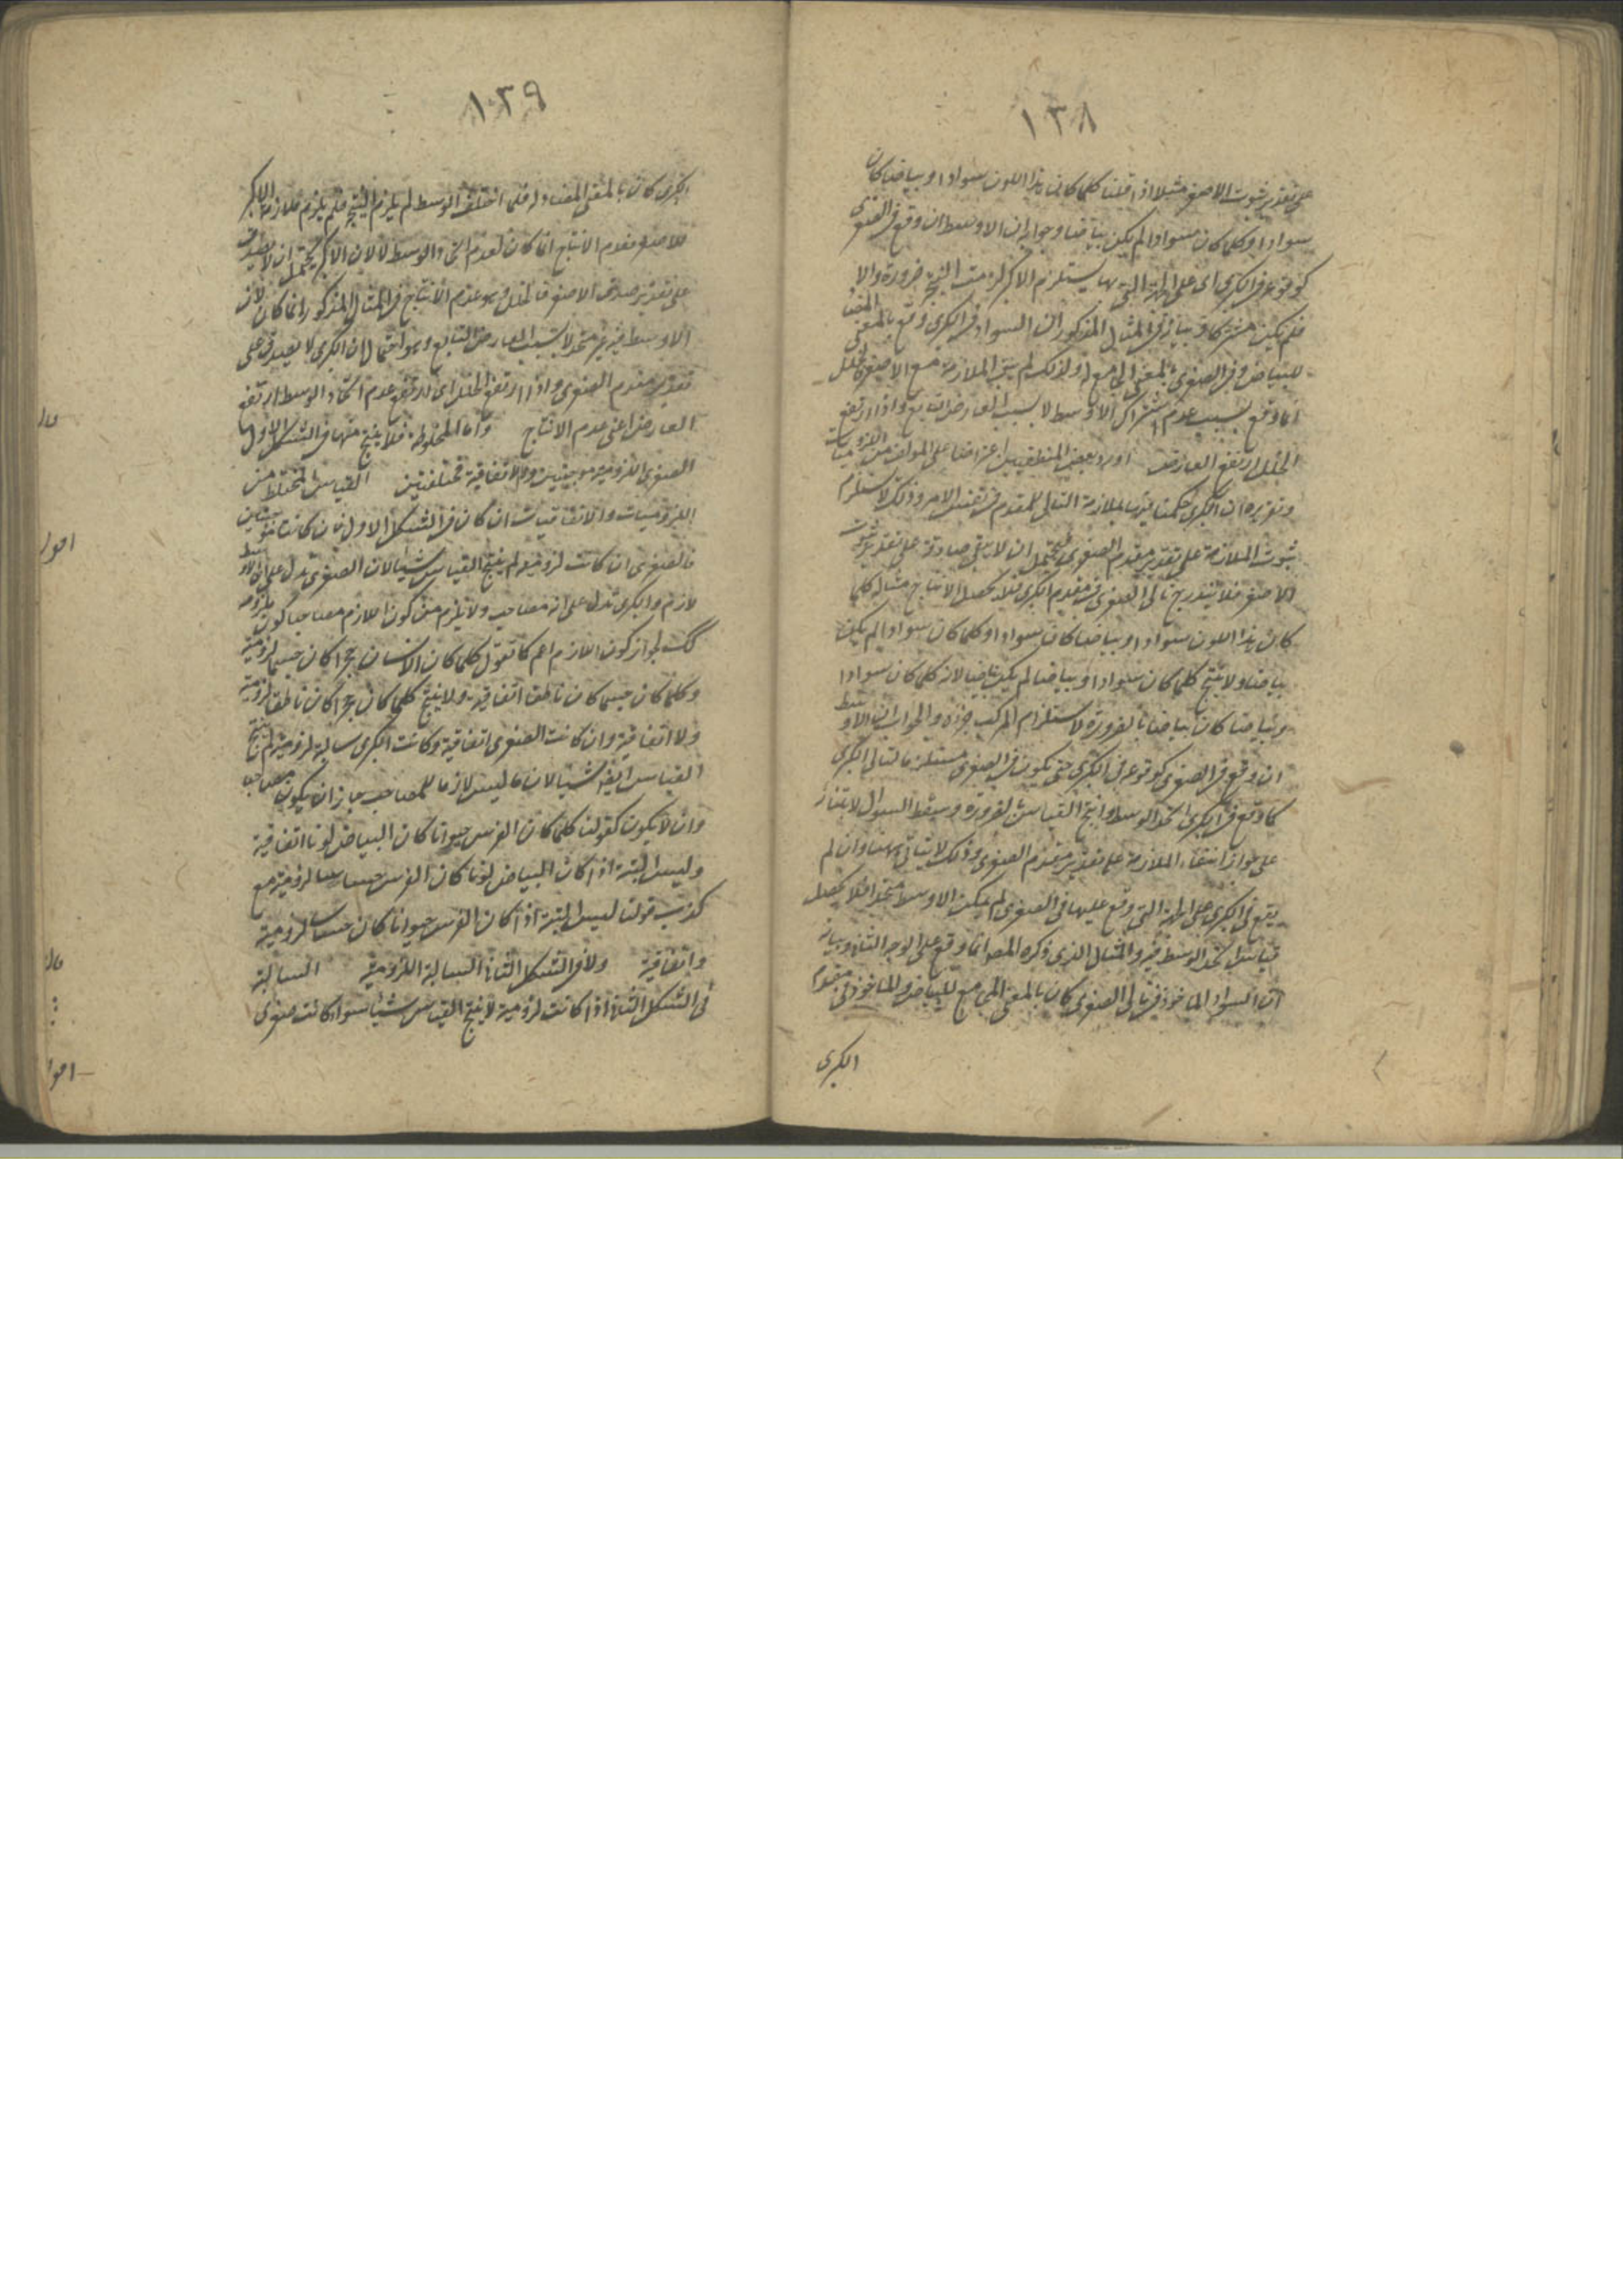 ١٣٨
على تقدير ثبوت الاصغر مثلا اذا قلنا كلما كان هذا اللون سوادا وبياضا كان
سوادا وكلما كان سوادا لم يكن بياضا وجوابه ان الاوسط ان وقع في الصغرى
كوقوعه في الكبرى اى على الجهة التى بها يستلزم الاكبر لزمت النتيجة ضرورة والا
فلم يكن مشتركا وبيانه في المثال المذكور ان السواد في الكبرى وقع بالمعنى المضاد
للبياض وفي الصغرى بالمعنى الجامع له ولذلك لم ينتج الملازمة مع الاصغر فالخلل
انما وقع بسبب عدم اشتراك الاوسط لا بسبب العارض التابع واذا ارتفع
الخلل ارتفع العارض اورد بعض المنطقيين اعتراضا على المولف من اللزوميات
وتقريره ان الكبرى حكمنا فيها بملازمة التالى للمقدم في نفس الامر وذلك لا يستلزم
ثبوت الملازمة على تقدير مقدم الصغرى فيحتمل ان لا يبقى صادقة على تقدير ثبوت
الاصغر فلا يندرج تالى الصغرى في مقدم الكبرى فلا يحصل الانتاج مثاله كلما
كان هذا اللون سوادا وبياضا كان سوادا وكلما كان سوادا لم يكن
بياضا ولا ينتج كلما كان سوادا وبياضا لم يكن بياضا لانه كلما كان سوادا
وبياضا كان بياضا بالضرورة لاستلزام المركب جزءه والجواب ان الاوسط
ان وقع في الصغرى كوقوعه في الكبرى حتى يكون في الصغرى مستلزما لتالى الكبرى
كما وقع في الكبرى اتحد الوسط وانتج القياس بالضرورة وسقط السوال لابتنائه
على جواز انتفاء الملازمة على تقدير مقدم الصغرى وذلك لا يتاتى ههنا وان لم
يقع في الكبرى على الجهة التى وقع عليها في الصغرى لم يكن الاوسط متحدا فلا يحصل
قياس لم يتحد الوسط فيه والمثال الذى ذكره المص انما وقع على الوجه الثانى وبيانه
ان السواد الماخوذ في تالى الصغرى كان بالمعنى الجامع للبياض والماخوذ في مقدم
الكبرى
١٣٩
الكبرى كان بالمعنى المضاد له فلما اختلف الوسط لم يلزم النتيجة فلم يلزم ملازمة الاكبر
للاصغر فعدم الانتاج انما كان لعدم اتحاد الوسط لا لان الاكبر يحتمل ان لا يصدق
على تقدير صدق الاصغر فالخلل وهو عدم الانتاج في المثال المذكور انما كان لان
الاوسط فيه غير متحد لا بسبب العارض التابع وهو احتمال ان الكبرى لا يصدق على
تقدير مقدم الصغرى واذا ارتفع الخلل اى ارتفع عدم اتحاد الوسط ارتفع
العارض اعنى عدم الانتاج واما المخلوطة فلا ينتج منها في الشكل الاول
الصغرى اللزومية موجبتين ولا الاتفاقية مختلفتين القياس المختلط من
اللزوميات والاتفاقيات ان كان في الشكل الاول فان كانتا موجبتين
فالصغرى ان كانت لزومية لم ينتج القياس شيئا لان الصغرى تدل على ان الاوسط
لازم والكبرى تدل على انه مصاحب ولا يلزم من كون اللازم مصاحبا كون ملزومه
كك لجواز كون اللازم اعم كما تقول كلما كان الانسان حجرا كان جسما لزومية
وكلما كان جسما كان ناطقا اتفاقية ولا ينتج كلما كان حجرا كان ناطقا لزومية
ولا اتفاقية وان كانت الصغرى اتفاقية وكانت الكبرى سالبة لزومية لم ينتج
القياس ايضا شيئا لان ما ليس لازما للمصاحب جاز ان يكون مصاحبا
وان لا يكون كقولنا كلما كان الفرس حيوانا كان البياض لونا اتفاقية
وليس البتة اذا كان البياض لونا كان الفرس حساسا لزومية مع
كذب قولنا ليس البتة اذا كان الفرس حيوانا كان حساسا لزومية
واتفاقية ولا في الشكل الثانى السالبة اللزومية السالبة
في الشكل الثانى اذا كانت لزومية لا ينتج القياس شيئا سواء كانت صغرى
قال
اقول
قال
اقول